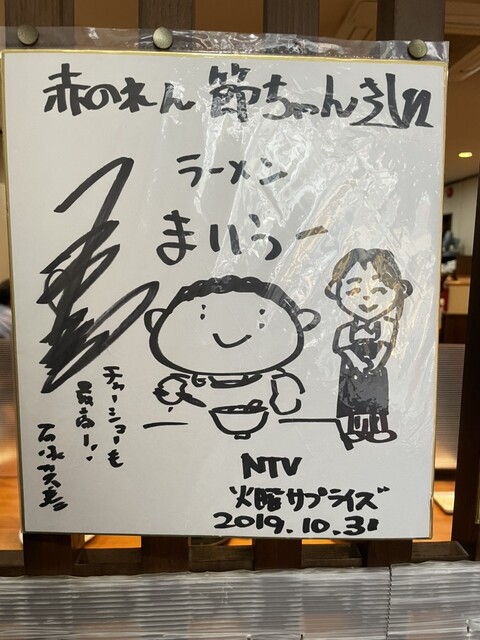 赤のれん 節ちゃんさん江
ラーメン
まいうー
チャーシューも
最高ー!!
NTV
火曜サプライズ
2019.10.31